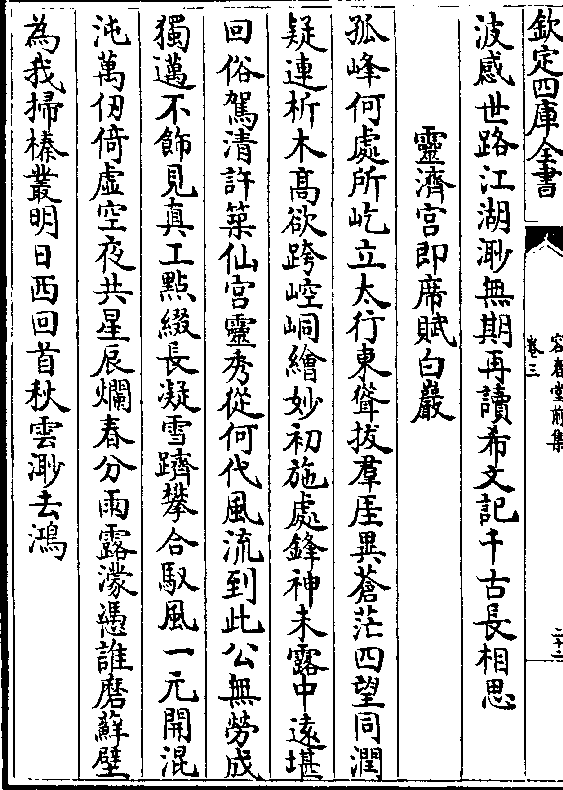 欽定四庫全書
容春堂前集
卷三
波感世路江湖渺無期再讀希文記千古長相思
靈濟宮即席賦白巖
孤峰何處所屹立太行東聳拔羣厓異蒼茫四望同潤
疑連析木高欲跨崆峒繪妙初施處鋒神未露中遠堪
回俗駕清許築仙宮靈秀從何代風流到此公無勞成
獨邁不飾見真工點綴長凝雪躋攀合馭風一元開混
沌萬仞倚虛空夜共星辰爛春分雨露濛憑誰磨蘚壁
為我掃榛叢明日西回首秋雲渺去鴻